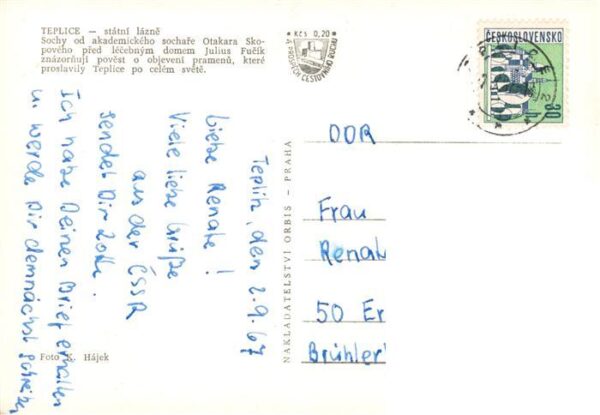 TEPLICE — státní lázně
Sochy od akademického sochaře Otakara Sko-
pového před léčebným domem Julius Fučík
znázorňují pověst o objevení pramenů, které
proslavily Teplice po celém světě.
Kčs 0,20
A PROVOZY CESTOVNÍHO RUCHU
ČESKOSLOVENSKO
30
h
Teplitz, den 2.9.67
Liebe Renate!
Viele liebe Grüße
aus der ČSSR
sendet Dir
Ich habe Deinen Brief erhalten
u. werde Dir demnächst schreiben
NAKLADATELSTVÍ ORBIS – PRAHA
DDR
Frau
Renat
50 Er
Brühler
Foto K. Hájek